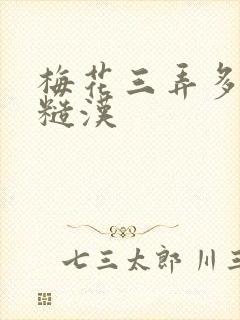 梅花三弄多
糙漢
七三太郎 川三